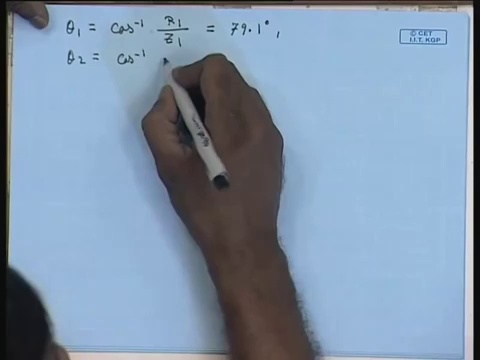 θ₁ = cos⁻¹ R₁/Z₁ = 79.1°,
θ₂ = cos⁻¹
© CET
I.I.T. KGP